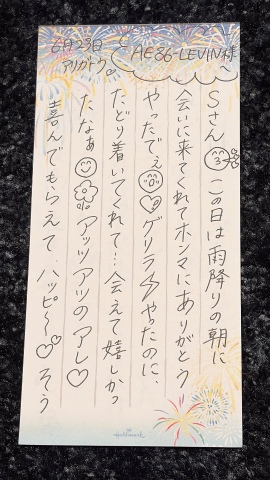 6月23日
アリガトウ。
AE86-LEVIN様へ
Sさん この日は雨降りの朝に
会いに来てくれてホンマにありがとう
やったでぇ ゲリラ やったのに、
たどり着いてくれて!会えて嬉しかっ
たなぁ アッツアツのアレ♡
喜んでもらえて、ハッピ〜♡♡そう
Hallmark